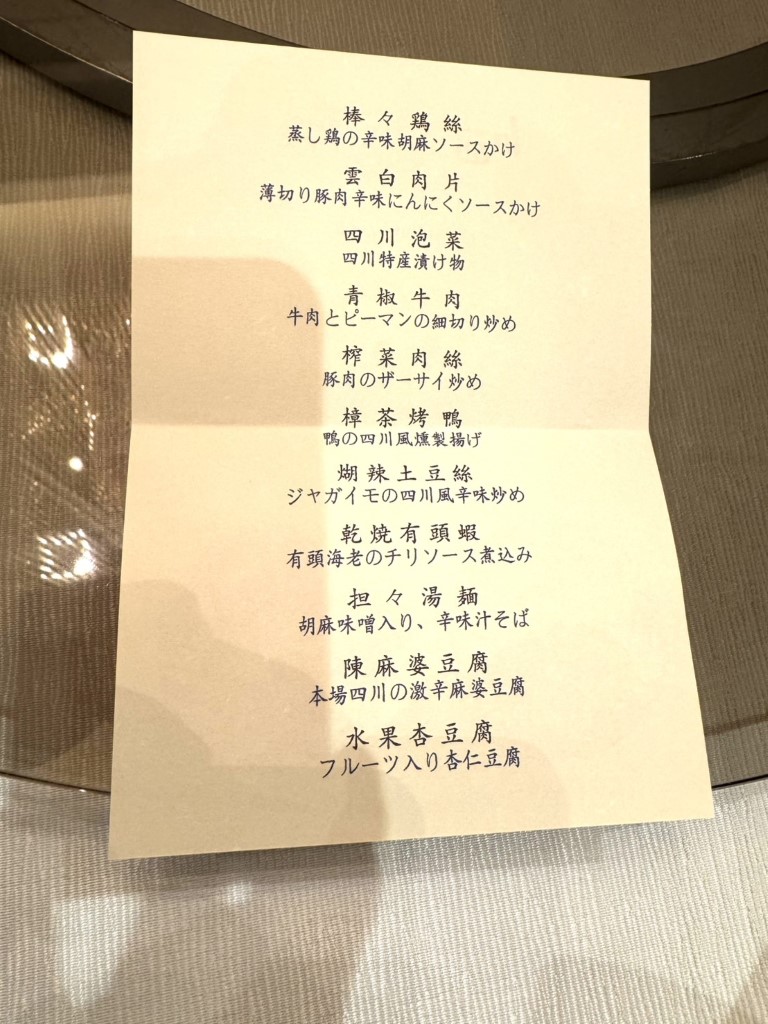 棒々鶏絲
蒸し鶏の辛味胡麻ソースかけ
雲白肉片
薄切り豚肉辛味にんにくソースかけ
四川泡菜
四川特産漬け物
青椒牛肉
牛肉とピーマンの細切り炒め
榨菜肉絲
豚肉のザーサイ炒め
樟茶烤鴨
鴨の四川風燻製揚げ
煳辣土豆絲
ジャガイモの四川風辛味炒め
乾焼有頭蝦
有頭海老のチリソース煮込み
担々湯麺
胡麻味噌入り、辛味汁そば
陳麻婆豆腐
本場四川の激辛麻婆豆腐
水果杏豆腐
フルーツ入り杏仁豆腐